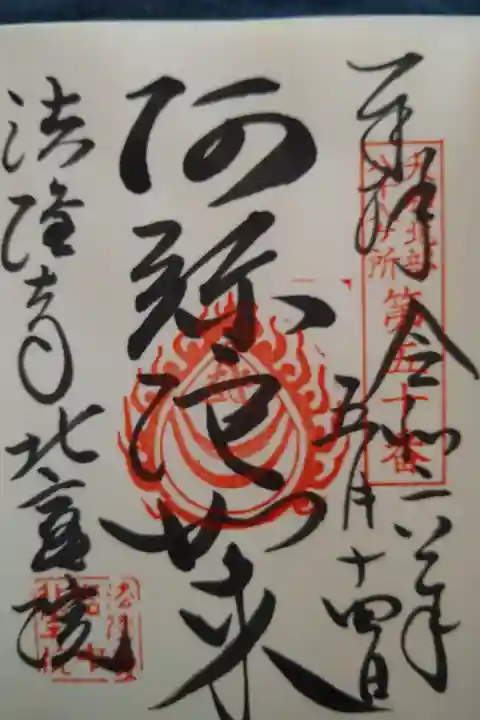 奉拝
令和六年
五月十四日
第五十番
阿弥陀如来
法隆寺北室院